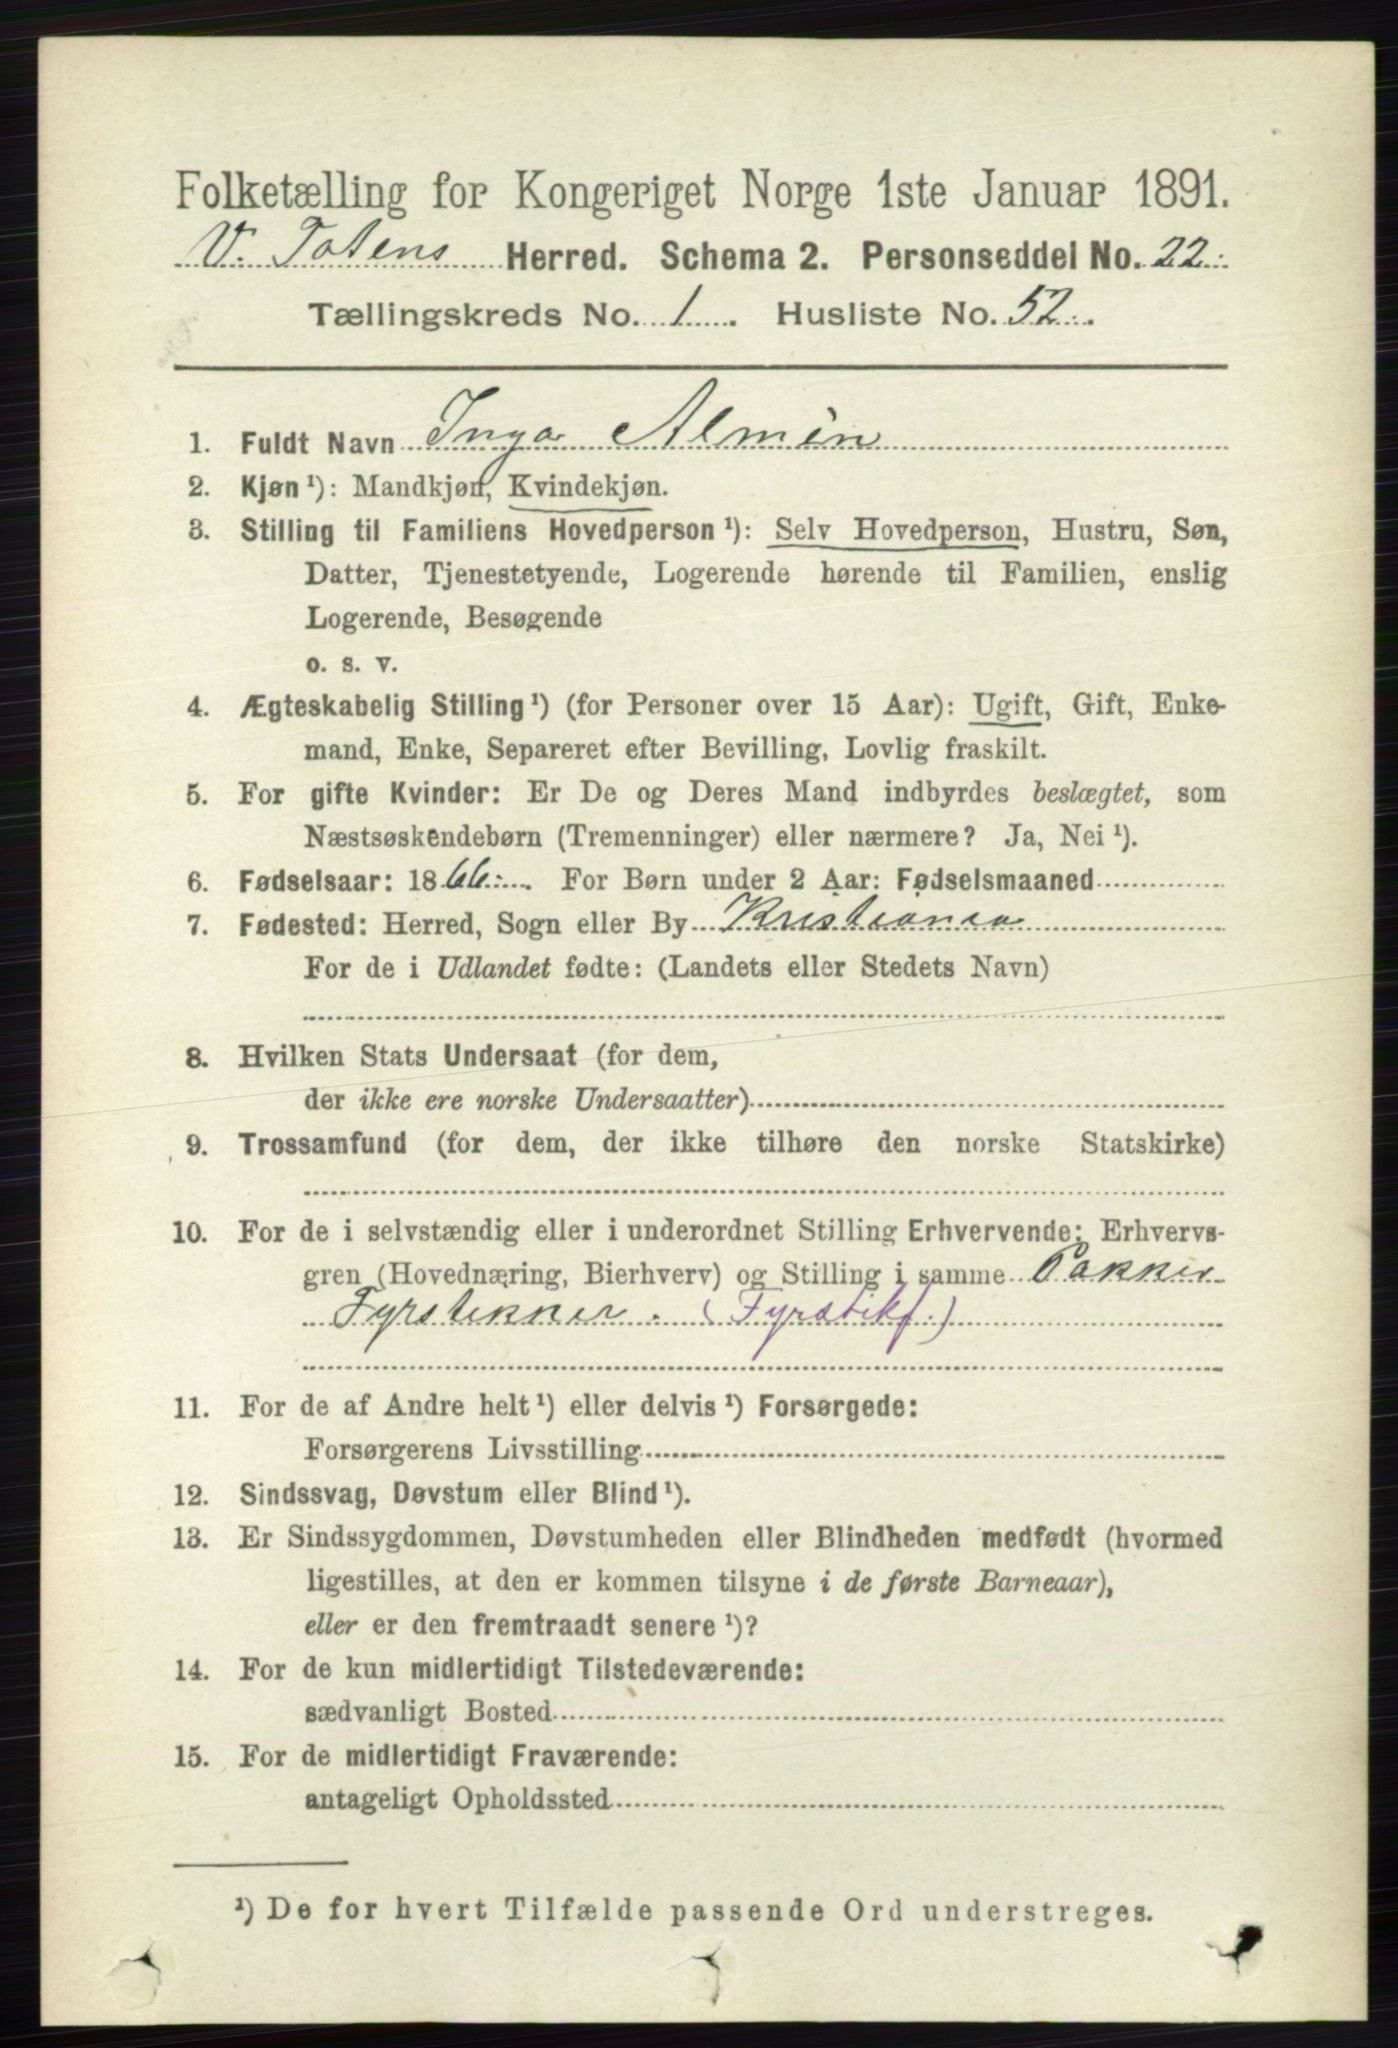 Folketælling for Kongeriget Norge 1ste Januar 1891.
V. Totens Herred. Schema 2. Personseddel No. 22.
Tællingskreds No. 1. Husliste No. 52.
1. Fuldt Navn Inga Almin
2. Kjøn ¹): Mandkjøn, Kvindekjøn.
3. Stilling til Familiens Hovedperson ¹): Selv Hovedperson, Hustru, Søn,
Datter, Tjenestetyende, Logerende hørende til Familien, enslig
Logerende, Besøgende
o. s. v.
4. Ægteskabelig Stilling ¹) (for Personer over 15 Aar): Ugift, Gift, Enke-
mand, Enke, Separeret efter Bevilling, Lovlig fraskilt.
5. For gifte Kvinder: Er De og Deres Mand indbyrdes beslægtet, som
Næstsøskendebørn (Tremenninger) eller nærmere? Ja, Nei ¹).
6. Fødselsaar: 1866. For Børn under 2 Aar: Fødselsmaaned
7. Fødested: Herred, Sogn eller By Kristiania
For de i Udlandet fødte: (Landets eller Stedets Navn)
8. Hvilken Stats Undersaat (for dem,
der ikke ere norske Undersaatter)
9. Trossamfund (for dem, der ikke tilhøre den norske Statskirke)
10. For de i selvstændig eller i underordnet Stilling Erhvervende: Erhvervs-
gren (Hovednæring, Bierhverv) og Stilling i samme Pakker
Fyrstikker. (Fyrstikf.)
11. For de af Andre helt ¹) eller delvis ¹) Forsørgede:
Forsørgerens Livsstilling
12. Sindssvag, Døvstum eller Blind ¹).
13. Er Sindssygdommen, Døvstumheden eller Blindheden medfødt (hvormed
ligestilles, at den er kommen tilsyne i de første Barneaar),
eller er den fremtraadt senere ¹)?
14. For de kun midlertidigt Tilstedeværende:
sædvanligt Bosted
15. For de midlertidigt Fraværende:
antageligt Opholdssted
¹) De for hvert Tilfælde passende Ord understreges.